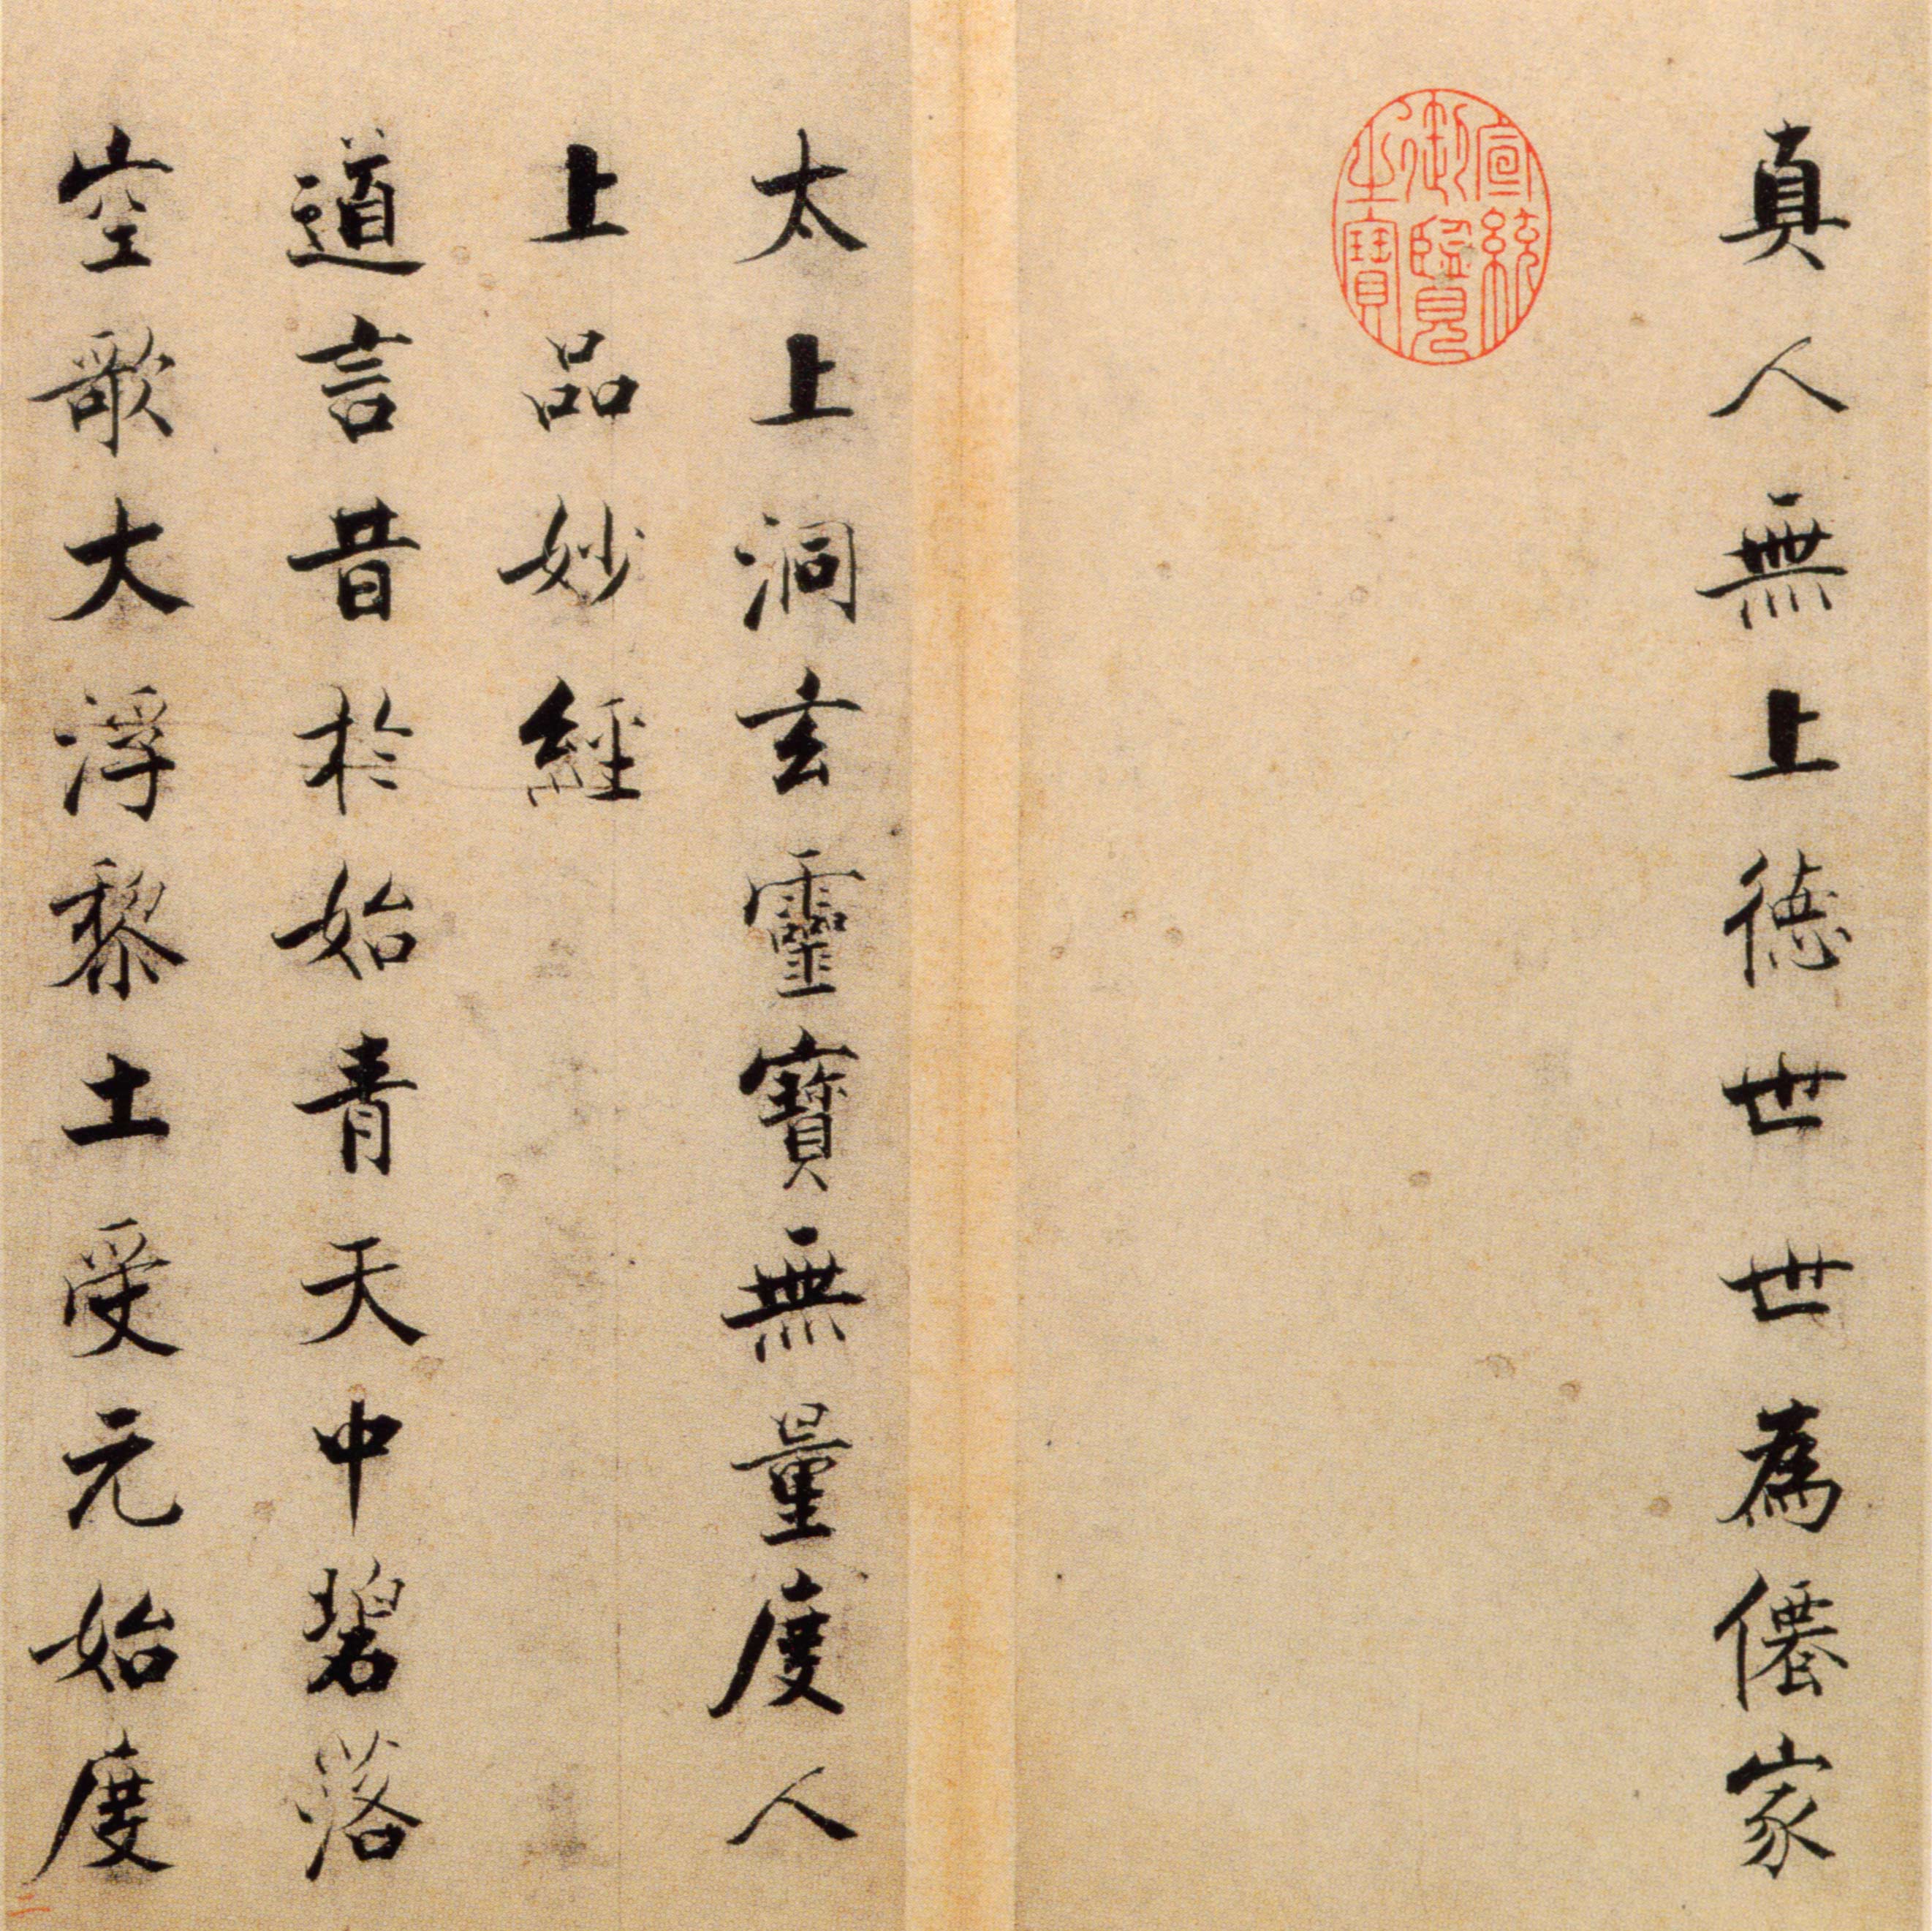 真人無上德世世為僊家
宣統
御覽
之寶
太上洞玄靈寶無量度人
上品妙經
道言昔於始青天中碧落
空歌大浮黎土受元始度
二